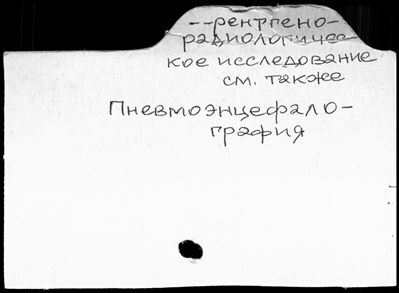 --рентгено-
радиологичес-
кое исследование
см. также
Пневмоэнцефало-
графия